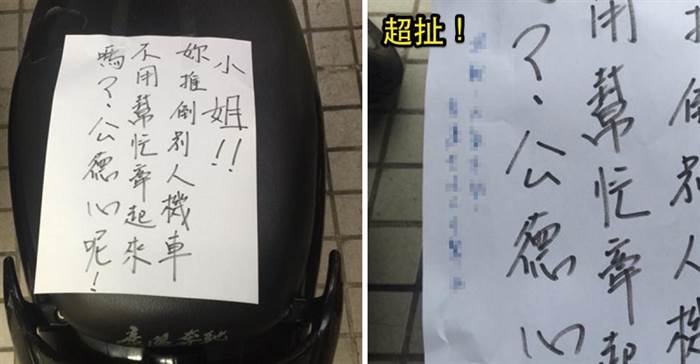 小姐!!
妳推倒別人機車
不用幫忙牽起來
嗎?、公德心呢!
超扯!
倒別人機
用幫忙牽起
?、公德心